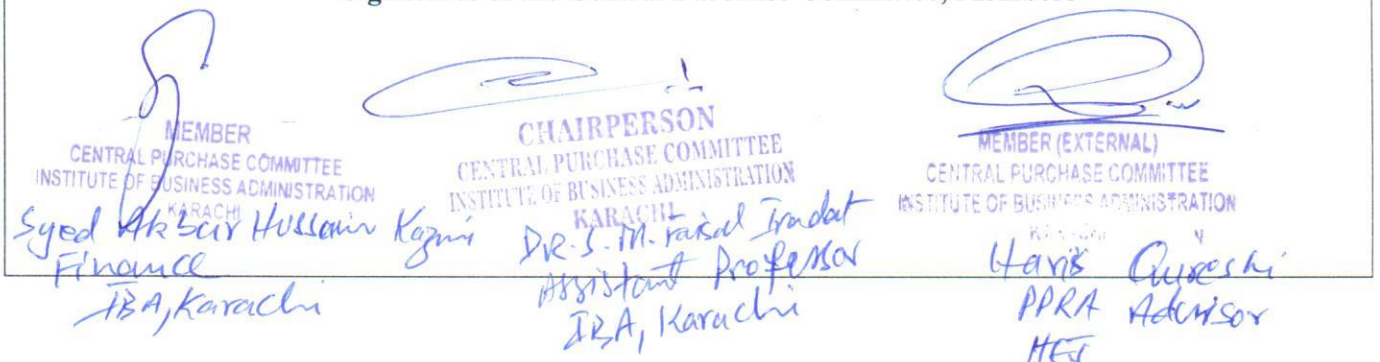 MEMBER
CENTRAL PURCHASE COMMITTEE
INSTITUTE OF BUSINESS ADMINISTRATION
KARACHI
Syed Akbar Hussain Kazmi
Finance
IBA, Karachi
CHAIRPERSON
CENTRAL PURCHASE COMMITTEE
INSTITUTE OF BUSINESS ADMINISTRATION
KARACHI
DR. S. M. Faisal Iradat
Assistant Professor
IBA, Karachi
MEMBER (EXTERNAL)
CENTRAL PURCHASE COMMITTEE
INSTITUTE OF BUSINESS ADMINISTRATION
KARACHI
Haris Qureshi
PPRA Advisor
HEJ